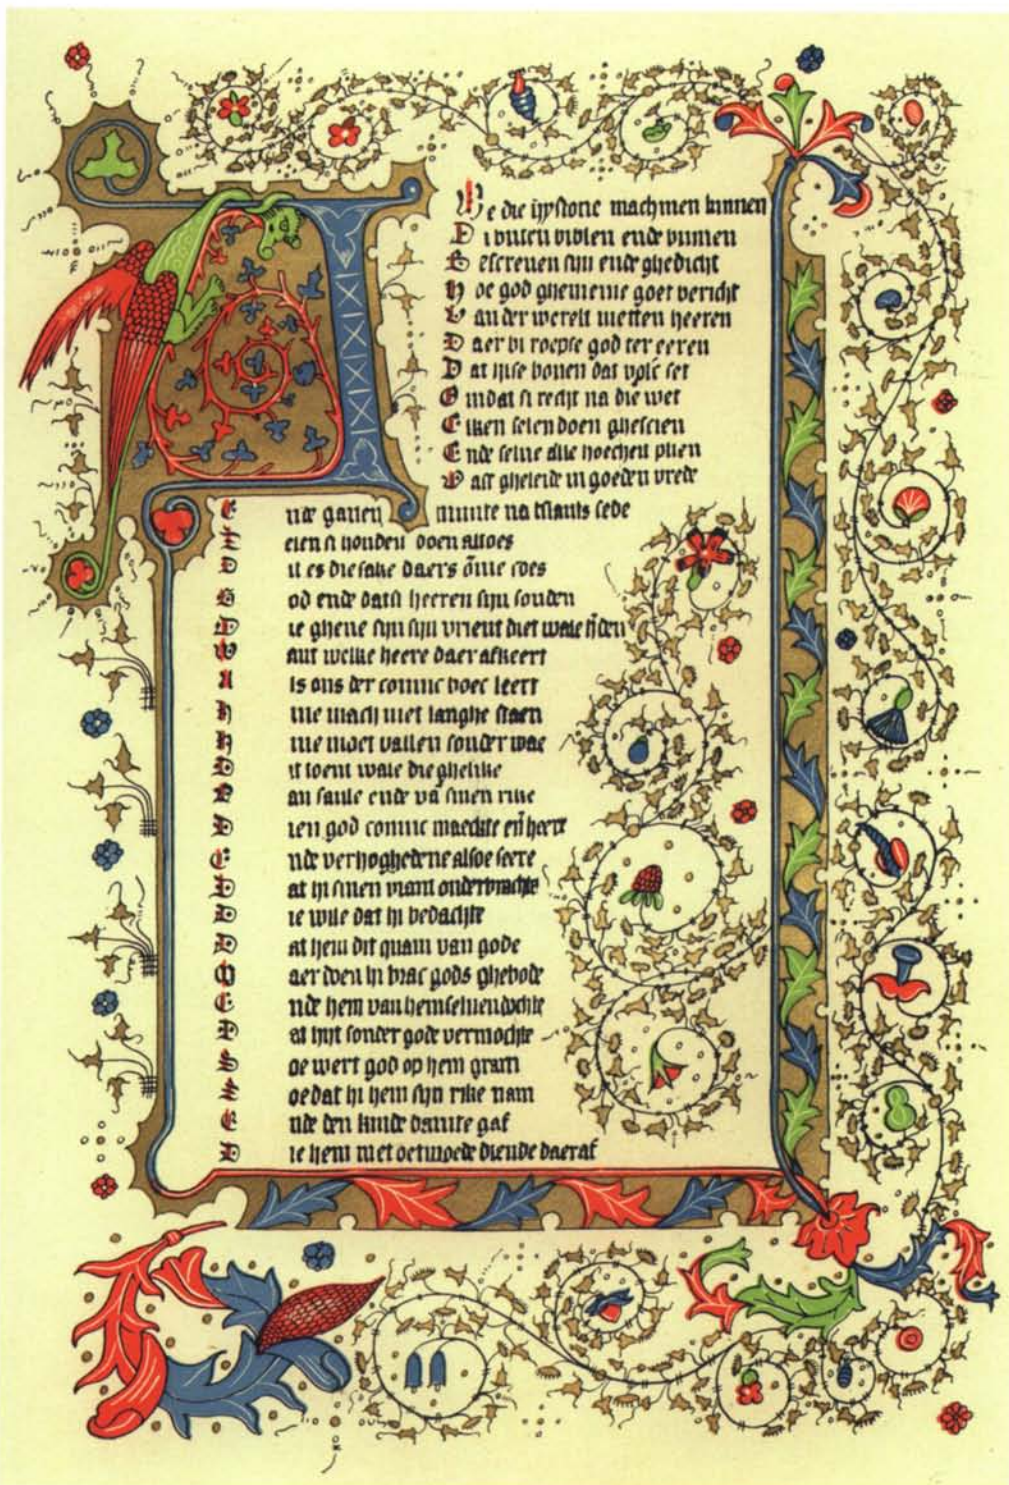 We die hystorie machmen kinnen
D i buten biblen ende binnen
B escreuen sijn ende ghedicht
H oe god ghemeinie goet bericht
V ander werelt metten heeren
D aer bi roepse god ter eeren
D at hise bouen dat volc set
O mdat si recht na die wet
E lken selen doen ghescien
E nde selue alle hoecheit plien
V ast gheleide in goeden vrede
E nde gauen munte na tslants sede
D it es die sake daers
G od ende datsi heeren sijn souden
D ie ghene sijn sijn vrient diet wale
W ant welke heere daer afkeert
A ls ons der coninc boec leert
H ine mach niet langhe staen
H ine moet vallen sonder wae
D it toent wale die ghelike
V an saule ende vā sinen rike
D ien god coninc maecte eñ heere
E nde verhoghedene alsoe seere
D at hi sinen viant onderbrachte
D ie wile dat hi bedachte
D at hem dit quam van gode
M aer doen hi brac gods ghebode
E nde hem van hemseluen dochte
D at hijt sonder gode vermochte
S oe wert god op hem gram
S oe dat hi hem sijn rike nam
E nde den kinde dauite gaf
D ie hem met oetmoede diende daeraf